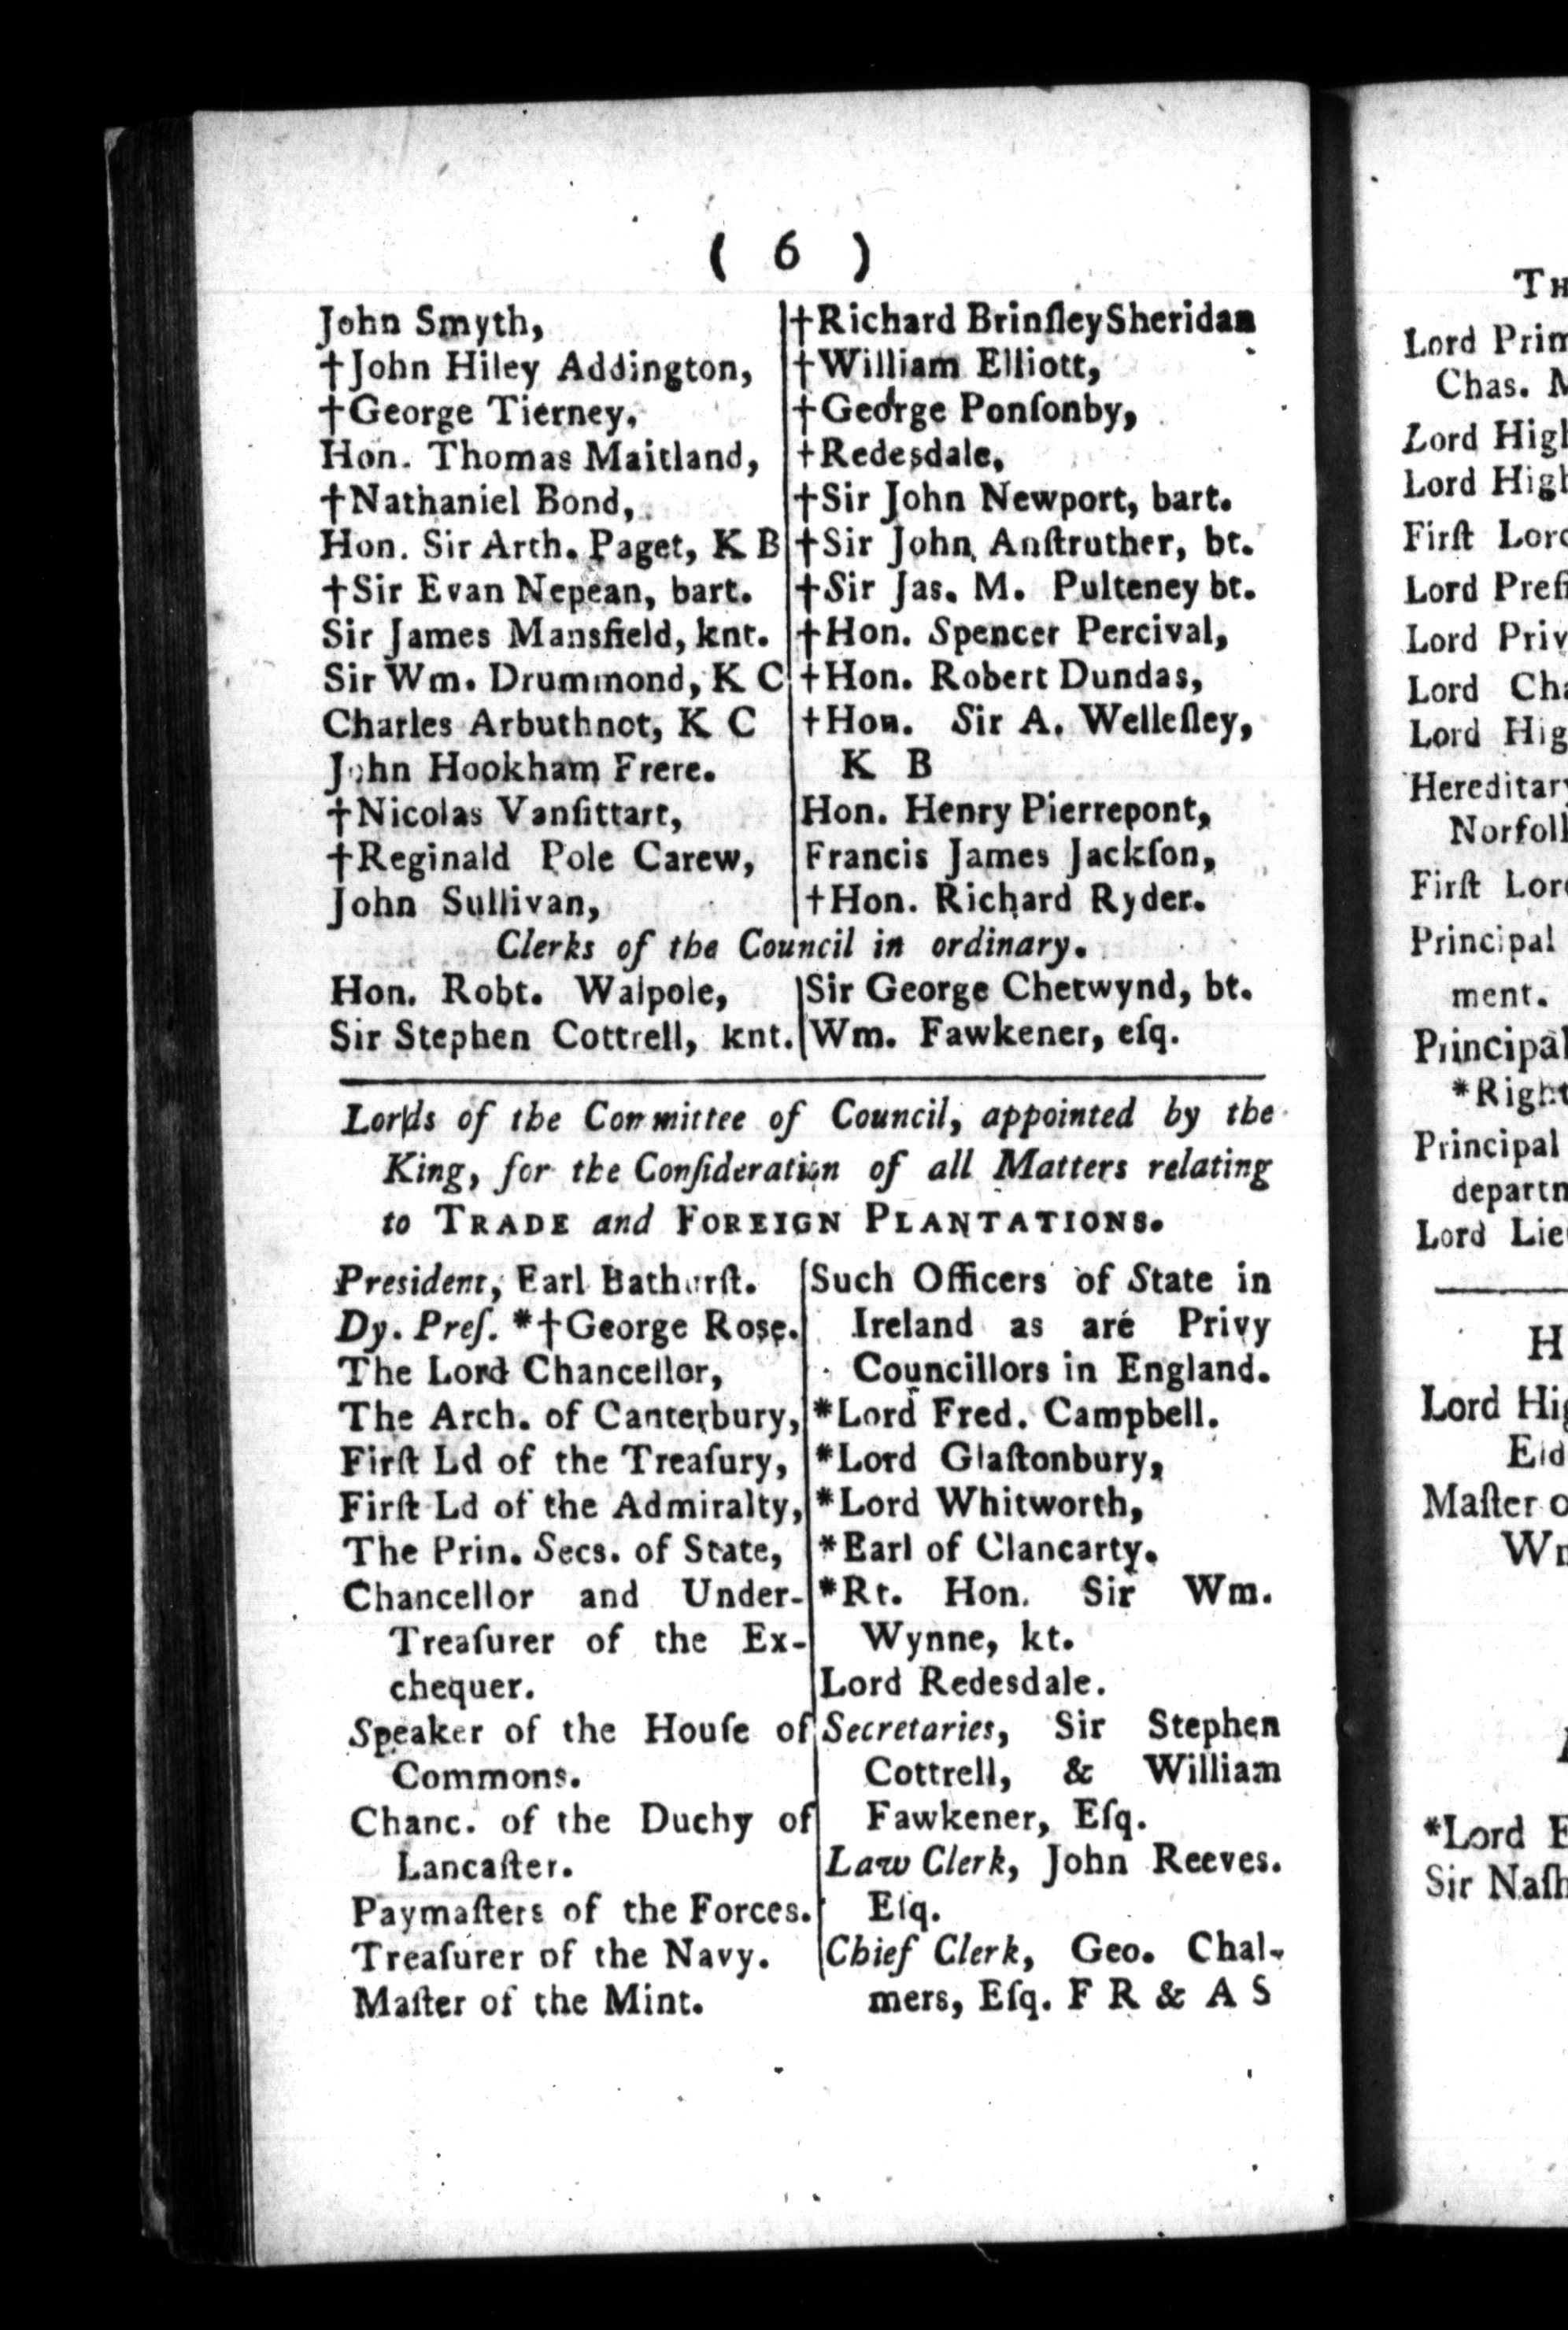 ( 6 )
John Smyth,
†John Hiley Addington,
†George Tierney,
Hon. Thomas Maitland,
†Nathaniel Bond,
Hon. Sir Arth. Paget, K B
†Sir Evan Nepean, bart.
Sir James Mansfield, knt.
Sir Wm. Drummond, K C
Charles Arbuthnot, K C
John Hookham Frere.
†Nicolas Vanſittart,
†Reginald Pole Carew,
John Sullivan,
†Richard Brinſley Sheridan
†William Elliott,
†George Ponſonby,
†Redesdale,
†Sir John Newport, bart.
†Sir John Anſtruther, bt.
†Sir Jas. M. Pulteney bt.
†Hon. Spencer Percival,
†Hon. Robert Dundas,
†Hon. Sir A. Welleſley,
K B
Hon. Henry Pierrepont,
Francis James Jackſon,
†Hon. Richard Ryder.
Clerks of the Council in ordinary.
Hon. Robt. Walpole,
Sir Stephen Cottrell, knt.
Sir George Chetwynd, bt.
Wm. Fawkener, eſq.
Lords of the Committee of Council, appointed by the
King, for the Conſideration of all Matters relating
to TRADE and FOREIGN PLANTATIONS.
President, Earl Bathurſt.
Dy. Preſ. *†George Rose.
The Lord Chancellor,
The Arch. of Canterbury,
Firſt Ld of the Treaſury,
Firſt Ld of the Admiralty,
The Prin. Secs. of State,
Chancellor and Under-
Treaſurer of the Ex-
chequer.
Speaker of the Houſe of
Commons.
Chanc. of the Duchy of
Lancaſter.
Paymaſters of the Forces.
Treaſurer of the Navy.
Maſter of the Mint.
Such Officers of State in
Ireland as are Privy
Councillors in England.
*Lord Fred. Campbell.
*Lord Glaſtonbury,
*Lord Whitworth,
*Earl of Clancarty.
*Rt. Hon. Sir Wm.
Wynne, kt.
Lord Redesdale.
Secretaries, Sir Stephen
Cottrell, & William
Fawkener, Eſq.
Law Clerk, John Reeves.
Eſq.
Chief Clerk, Geo. Chal-
mers, Eſq. F R & A S
Lord
Chas.
Lord
Lord
Firſt
Lord
Lord
Lord
Lord
Firſt
Principal
ment.
Principal
Lord
Lord
Maſter
*Lord
Sir